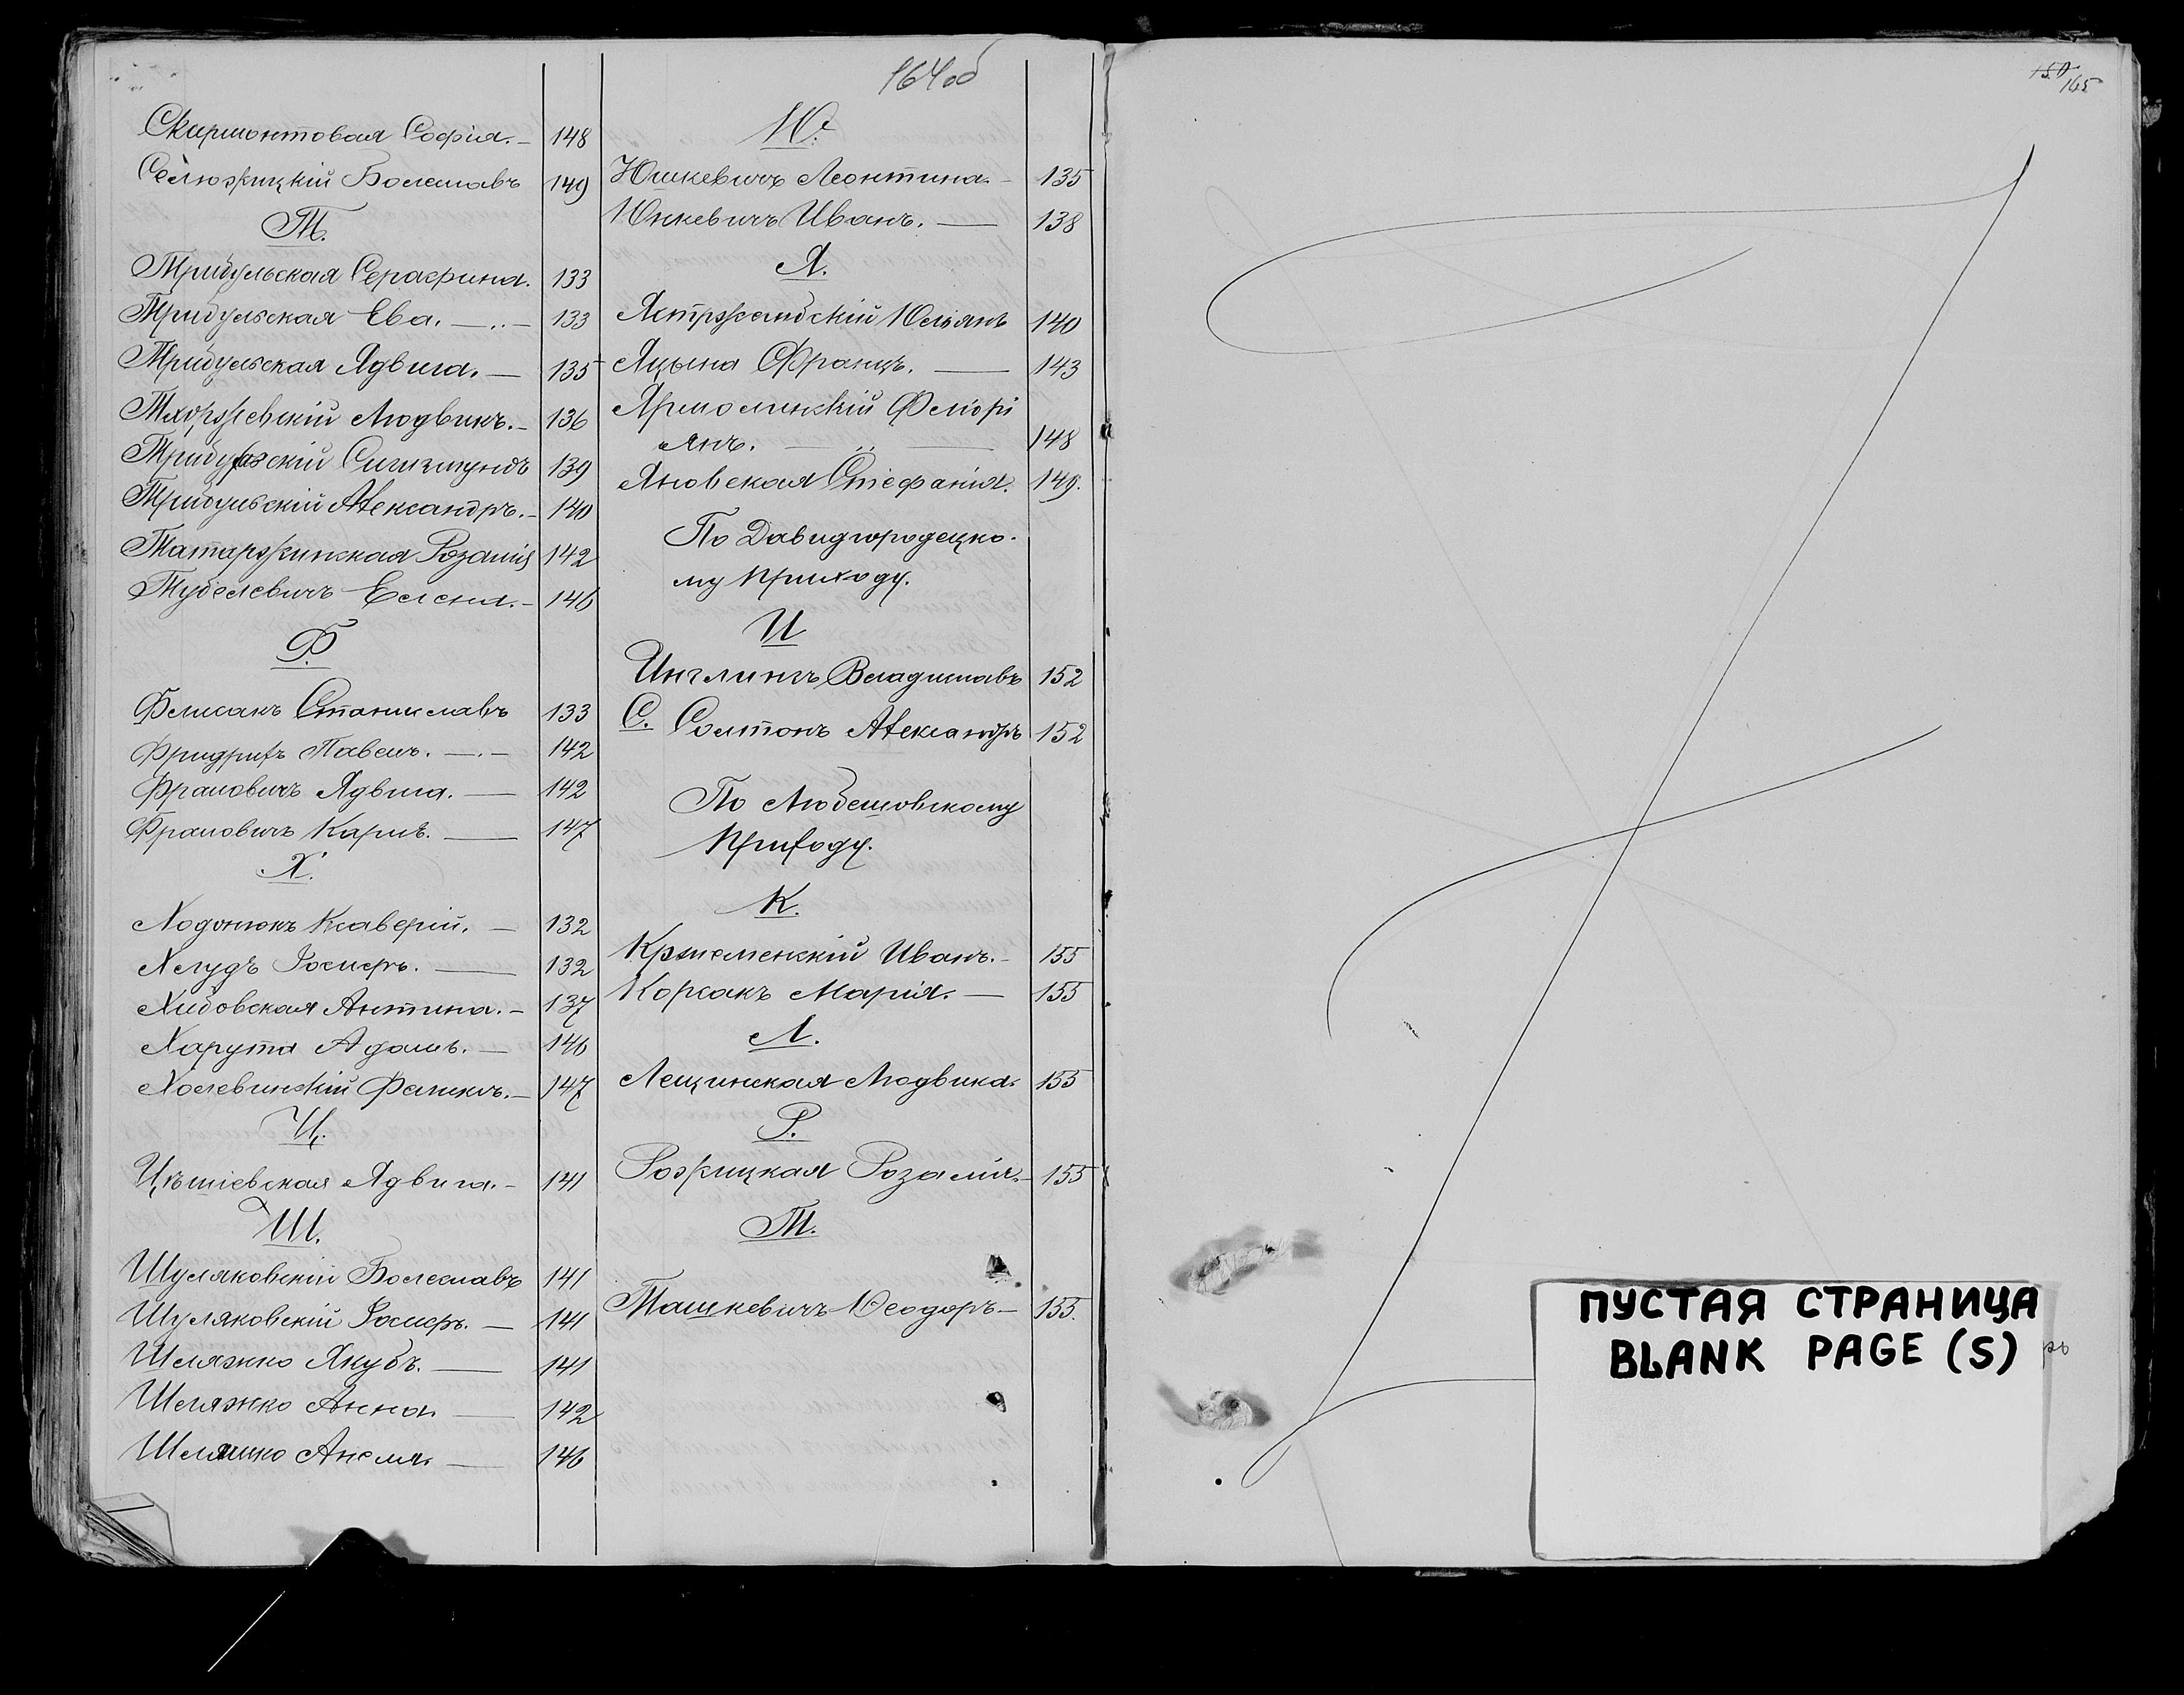 164об
Скирмонтовая Софія. 148
Селюжицкій Болеславъ 149
Т.
Трибульская Серафина. 133
Трибульская Ева. 133
Трибульская Ядвига. 135
Тхоржевскій Людвикъ. 136
Трибульскій Сигизмундъ 139
Трибульскій Александръ. 140
Татаржинская Розалія 142
Тубелевичъ Елена. 146
Ф.
Фелисакъ Станиславъ 133
Фридрихъ Павелъ. 142
Врановичъ Ядвига. 142
Врановичъ Карлъ. 147
Х.
Ходонюкъ Ксаверій. 132
Хелудъ Іосифъ. 132
Хибовская Антина. 137
Харута Адамъ. 146
Холевинскій Феликсъ. 147
Ц.
Цѣшіевская Ядвига. 141
Ш.
Шуляковскій Болеславъ 141
Шуляковскій Іосифъ. 141
Шеляжко Якубъ. 141
Шеляжко Анна. 142
Шеляшко Анеля. 146
Ю.
Юшкевичъ Леонтина. 135
Юнкевичъ Иванъ. 138
Я.
Ястржембскій Юліянъ 140
Яцына Францъ. 143
Ярмолинскій Флорі
янъ. 148
Яновская Стефанія. 149.
По Давидгородецко-
му приходу.
И
Инглингъ Владиславъ 152
С. Солтонъ Александръ 152
По Любешовскому
приходу.
К.
Кржеменскій Иванъ. 155
Корсакъ Марія. 155
Л.
Лещинская Людвика. 155
Р.
Рожицкая Розалія. 155
Т.
Ташкевичъ Ѳеодоръ 155.
150 165
ПУСТАЯ СТРАНИЦА
BLANK PAGE (S)
ръ